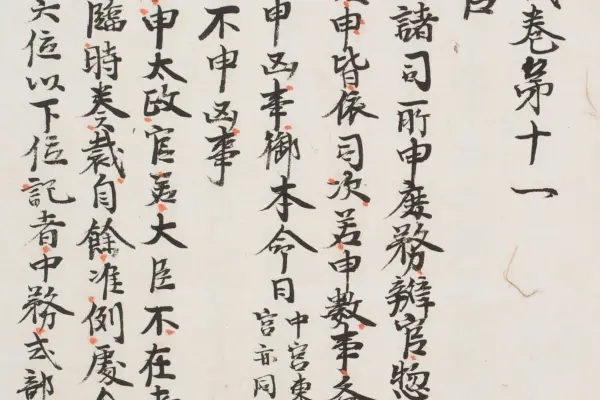 式巻第十一
官
諸司所申庶務辨官惣
申皆依司次若申數事
申凶事御本命日中宮東宮亦同
不申凶事
申太政官若大臣不在者
臨時奏裁自餘准例處分
六位以下位記者中務式部